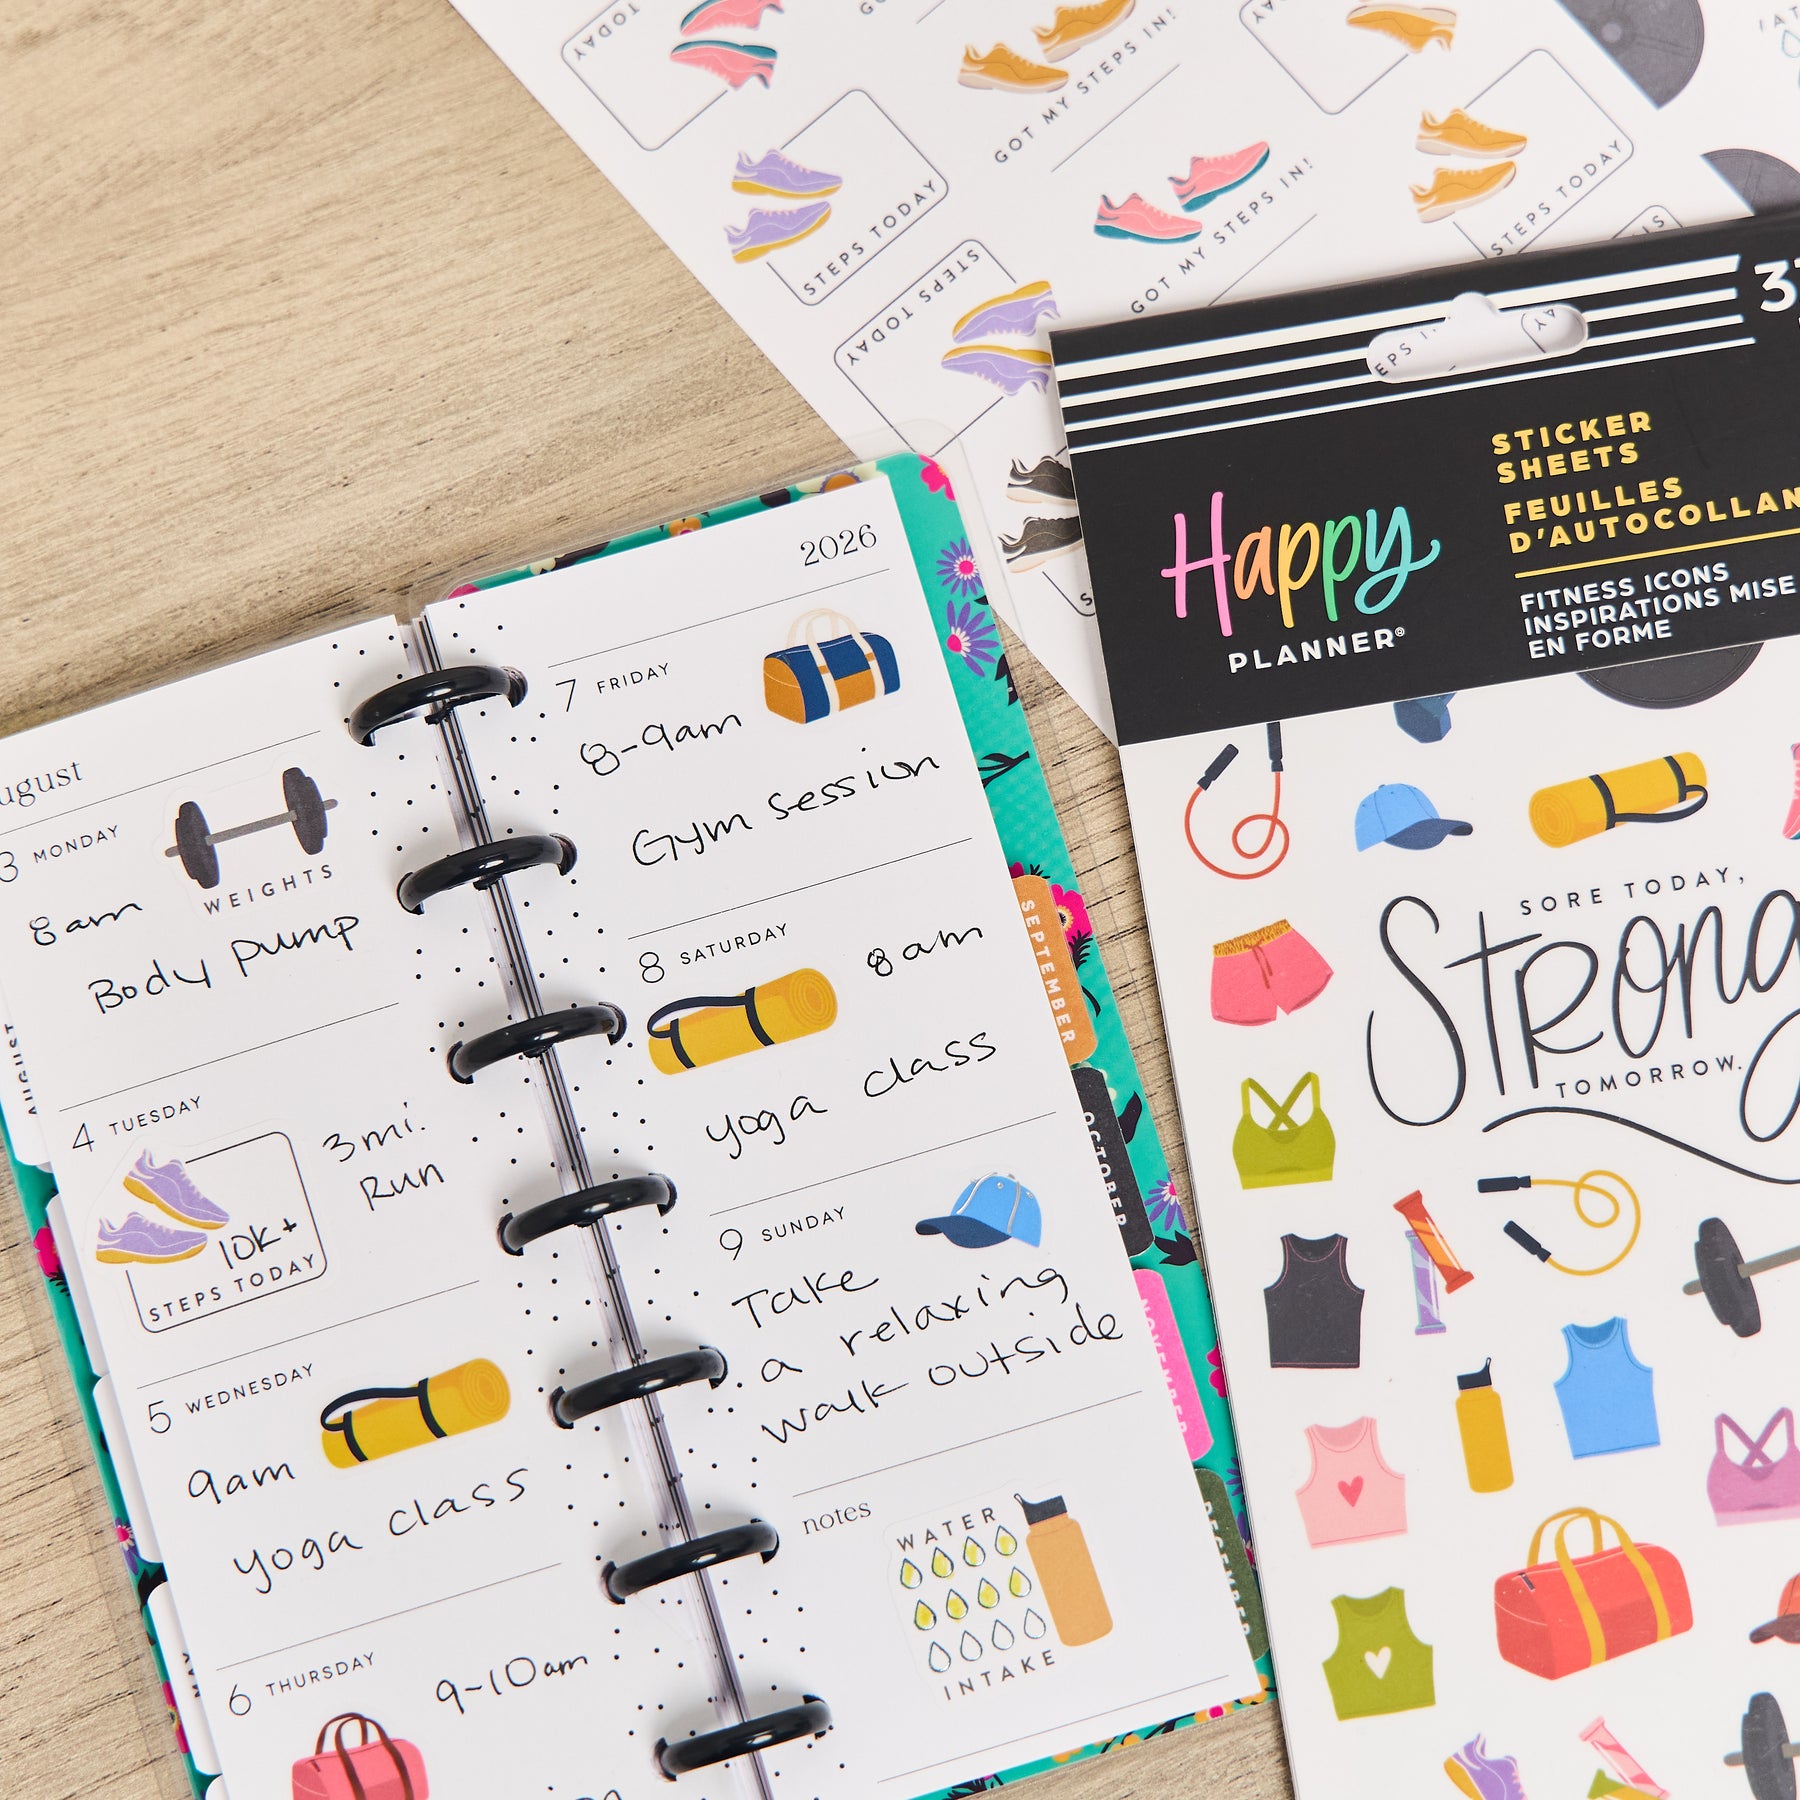 ugust
3 MONDAY
WEIGHTS
8am
Body pump
AUGUST
4 TUESDAY
3mi.
Run
10k+
STEPS TODAY
5 WEDNESDAY
9am
yoga class
6 THURSDAY
9-10am
2026
7 FRIDAY
8-9am
Gym session
8 SATURDAY
8am
yoga class
9 SUNDAY
Take
a relaxing
walk outside
notes
WATER
INTAKE
SEPTEMBER
OCTOBER
NOVEMBER
DECEMBER
TODAY
GOT MY STEPS IN!
STEPS TODAY
GOT MY STEPS IN!
STEPS TODAY
STEPS TODAY
EPS I
AY
Happy
PLANNER®
STICKER
SHEETS
FEUILLES
D'AUTOCOLLAN
FITNESS ICONS
INSPIRATIONS MISE
EN FORME
SORE TODAY,
STRONG
TOMORROW.